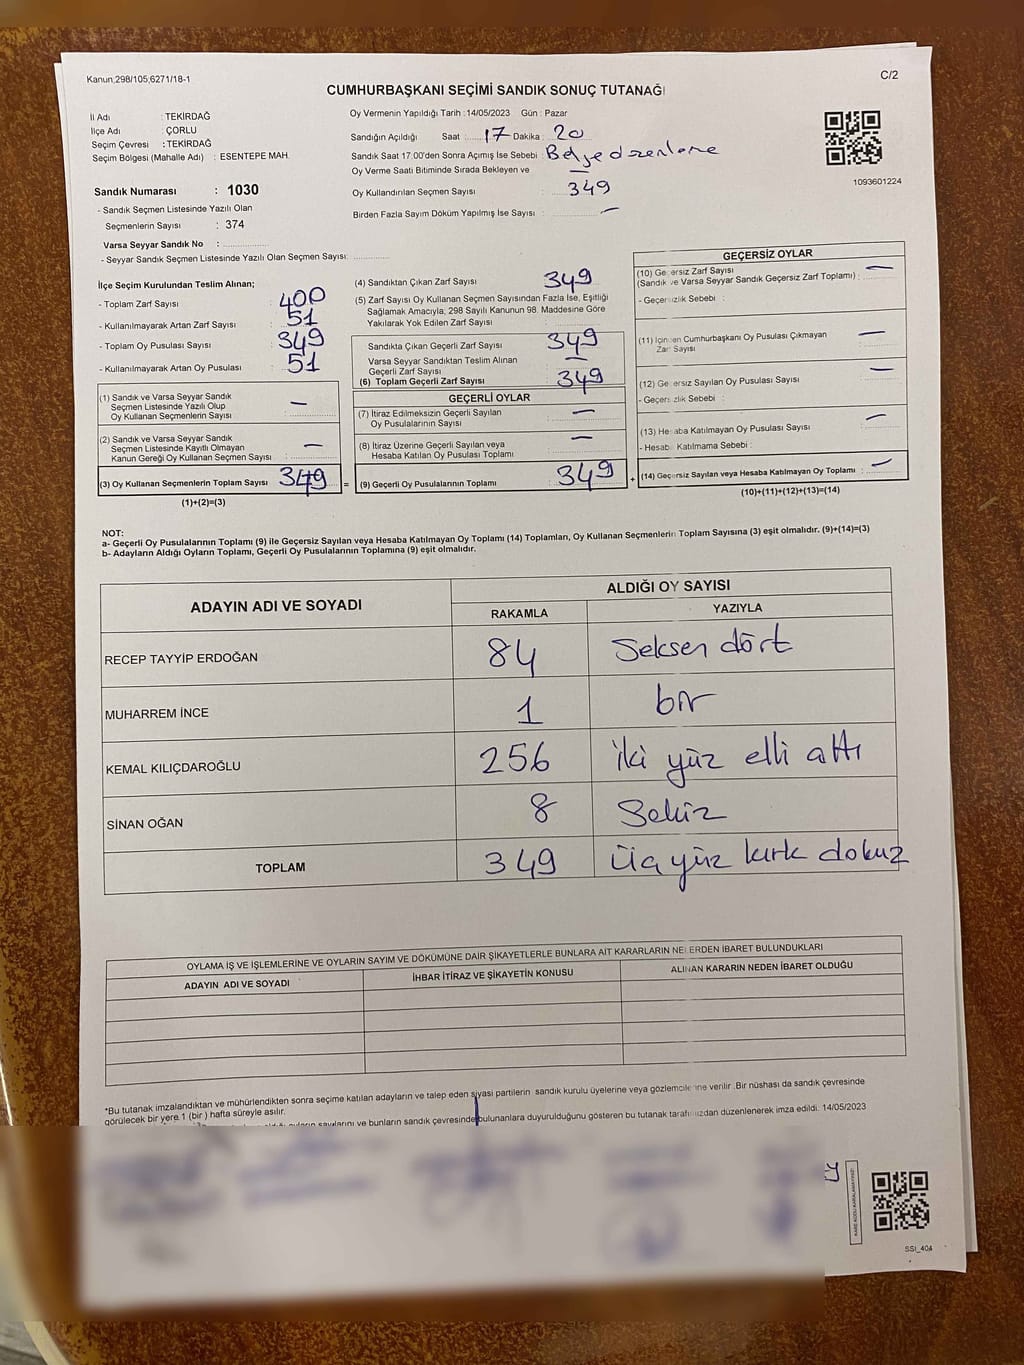 Kanun,298/105,6271/18-1
C/2
CUMHURBAŞKANI SEÇİMİ SANDIK SONUÇ TUTANAĞI
İl Adı : TEKİRDAĞ
İlçe Adı : ÇORLU
Seçim Çevresi : TEKİRDAĞ
Seçim Bölgesi (Mahalle Adı) : ESENTEPE MAH.
Sandık Numarası : 1030
- Sandık Seçmen Listesinde Yazılı Olan
Seçmenlerin Sayısı : 374
Varsa Seyyar Sandık No :
- Seyyar Sandık Seçmen Listesinde Yazılı Olan Seçmen Sayısı:
Oy Vermenin Yapıldığı Tarih : 14/05/2023 Gün : Pazar
Sandığın Açıldığı Saat : 17 Dakika : 20
Sandık Saat 17.00'den Sonra Açımış İse Sebebi : Belge düzenleme
Oy Verme Saati Bitiminde Sırada Bekleyen ve —
Oy Kullandırılan Seçmen Sayısı : 349
Birden Fazla Sayım Döküm Yapılmış İse Sayısı : —
1093601224
İlçe Seçim Kurulundan Teslim Alınan;
- Toplam Zarf Sayısı : 400
- Kullanılmayarak Artan Zarf Sayısı : 51
- Toplam Oy Pusulası Sayısı : 349
- Kullanılmayarak Artan Oy Pusulası : 51
(1) Sandık ve Varsa Seyyar Sandık
Seçmen Listesinde Yazılı Olup
Oy Kullanan Seçmenlerin Sayısı : —
(2) Sandık ve Varsa Seyyar Sandık
Seçmen Listesinde Kayıtlı Olmayan
Kanun Gereği Oy Kullanan Seçmen Sayısı : —
(3) Oy Kullanan Seçmenlerin Toplam Sayısı : 349
(1)+(2)=(3)
=
(4) Sandıktan Çıkan Zarf Sayısı : 349
(5) Zarf Sayısı Oy Kullanan Seçmen Sayısından Fazla İse, Eşitliği
Sağlamak Amacıyla; 298 Sayılı Kanunun 98. Maddesine Göre
Yakılarak Yok Edilen Zarf Sayısı :
Sandıkta Çıkan Geçerli Zarf Sayısı : 349
Varsa Seyyar Sandıktan Teslim Alınan
Geçerli Zarf Sayısı : —
(6) Toplam Geçerli Zarf Sayısı : 349
GEÇERLİ OYLAR
(7) İtiraz Edilmeksizin Geçerli Sayılan
Oy Pusulalarının Sayısı : —
(8) İtiraz Üzerine Geçerli Sayılan veya
Hesaba Katılan Oy Pusulası Toplamı : —
(9) Geçerli Oy Pusulalarının Toplamı : 349
+
GEÇERSİZ OYLAR
(10) Geçersiz Zarf Sayısı
(Sandık ve Varsa Seyyar Sandık Geçersiz Zarf Toplamı) : —
- Geçersizlik Sebebi :
(11) İçinden Cumhurbaşkanı Oy Pusulası Çıkmayan
Zarf Sayısı : —
(12) Geçersiz Sayılan Oy Pusulası Sayısı : —
- Geçersizlik Sebebi :
(13) Hesaba Katılmayan Oy Pusulası Sayısı : —
- Hesaba Katılmama Sebebi :
(14) Geçersiz Sayılan veya Hesaba Katılmayan Oy Toplamı : —
(10)+(11)+(12)+(13)=(14)
NOT:
a- Geçerli Oy Pusulalarının Toplamı (9) ile Geçersiz Sayılan veya Hesaba Katılmayan Oy Toplamı (14) Toplamları, Oy Kullanan Seçmenlerin Toplam Sayısına (3) eşit olmalıdır. (9)+(14)=(3)
b- Adayların Aldığı Oyların Toplamı, Geçerli Oy Pusulalarının Toplamına (9) eşit olmalıdır.
ADAYIN ADI VE SOYADI
ALDIĞI OY SAYISI
RAKAMLA YAZIYLA
RECEP TAYYİP ERDOĞAN 84 Seksen dört
MUHARREM İNCE 1 bir
KEMAL KILIÇDAROĞLU 256 iki yüz elli altı
SİNAN OĞAN 8 Sekiz
TOPLAM 349 Üç yüz kırk dokuz
OYLAMA İŞ VE İŞLEMLERİNE VE OYLARIN SAYIM VE DÖKÜMÜNE DAİR ŞİKAYETLERLE BUNLARA AİT KARARLARIN NELERDEN İBARET BULUNDUKLARI
ADAYIN ADI VE SOYADI İHBAR İTİRAZ VE ŞİKAYETİN KONUSU ALINAN KARARIN NEDEN İBARET OLDUĞU
*Bu tutanak imzalandıktan ve mühürlendikten sonra seçime katılan adayların ve talep eden siyasi partilerin sandık kurulu üyelerine veya gözlemcilerine verilir .Bir nüshası da sandık çevresinde
görülecek bir yere 1 (bir ) hafta süreyle asılır.
ve bunların sandık çevresinde bulunanlara duyurulduğunu gösteren bu tutanak tarafımızdan düzenlenerek imza edildi. 14/05/2023
SSI_404